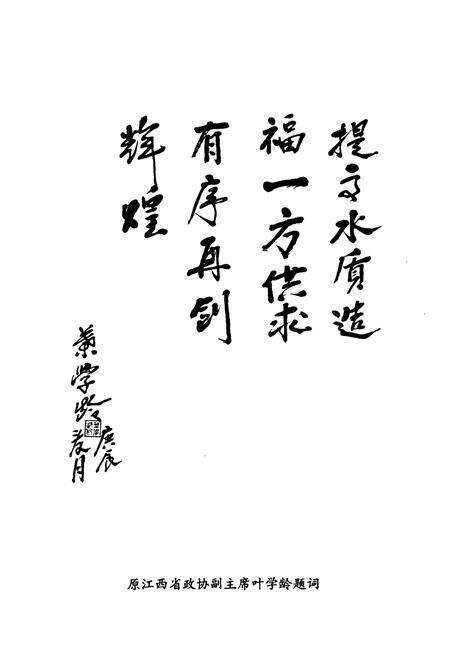 提高水质造
福一方供求
有序再创
辉煌
葉学龄
庚辰
春月
原江西省政协副主席叶学龄题词